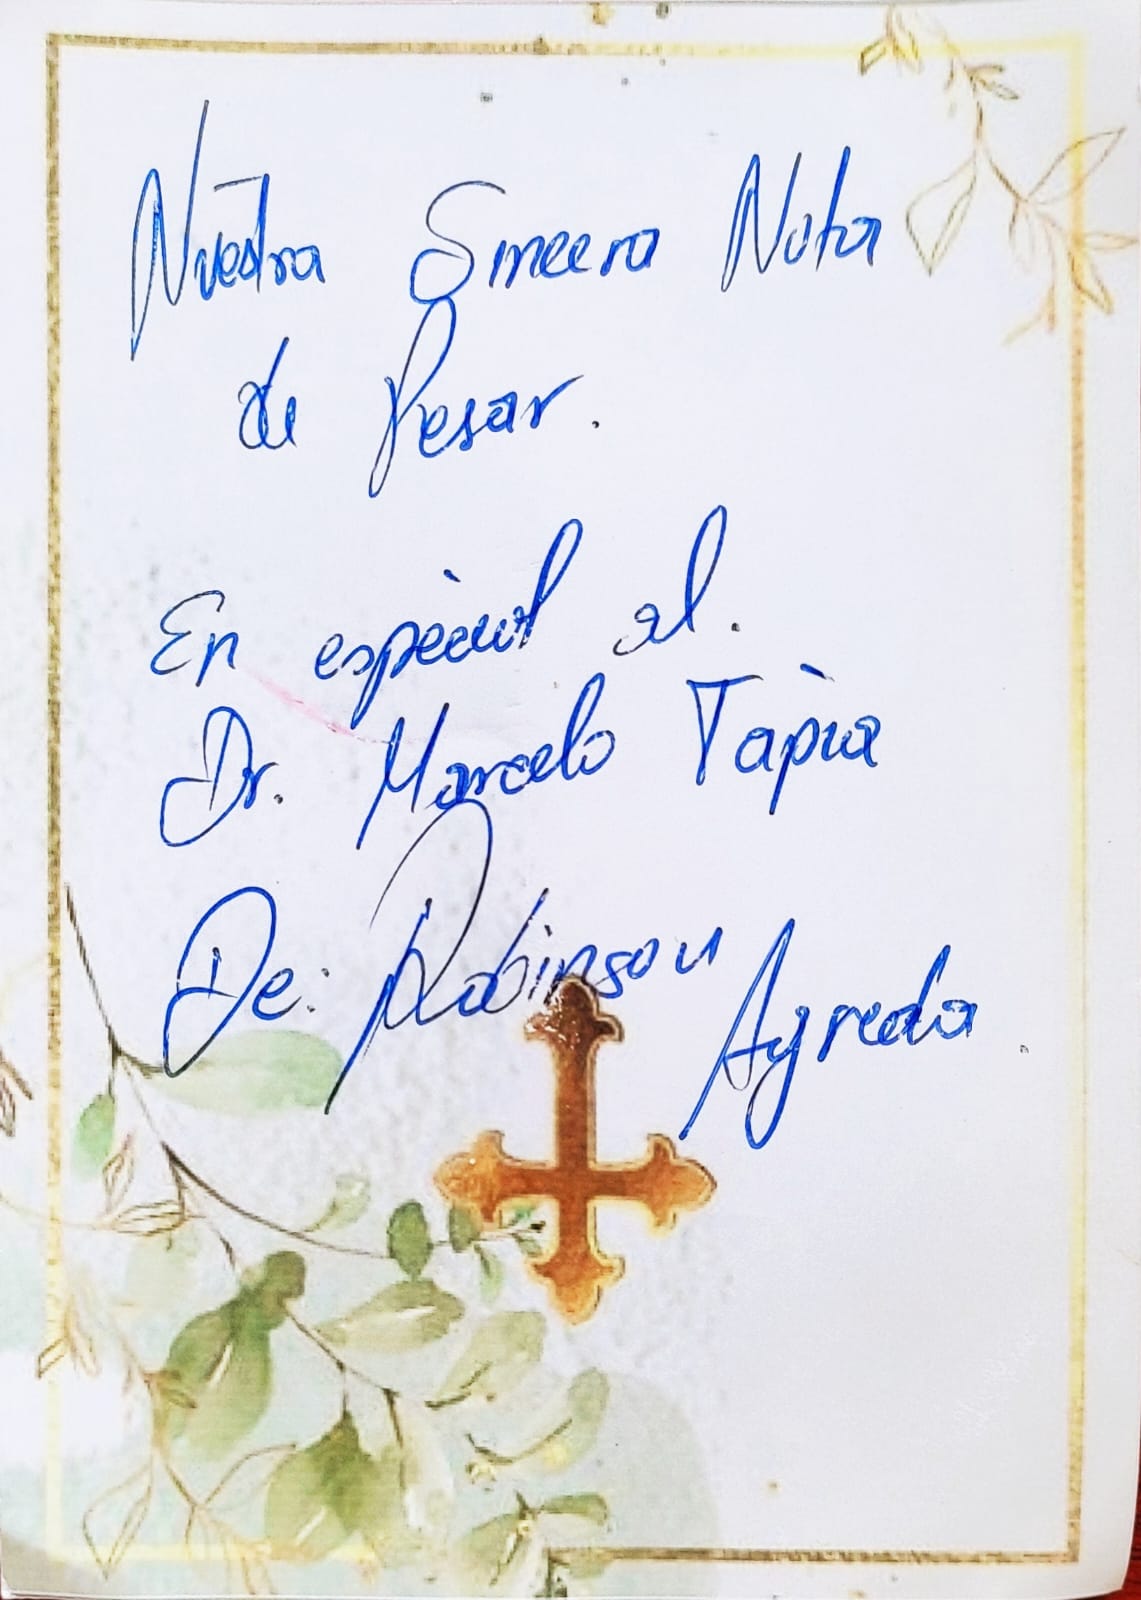 Nuestra Sincera Nota
de Pesar.
En especial al.
Dr. Marcelo Tapia
De: Robinson Agreda.